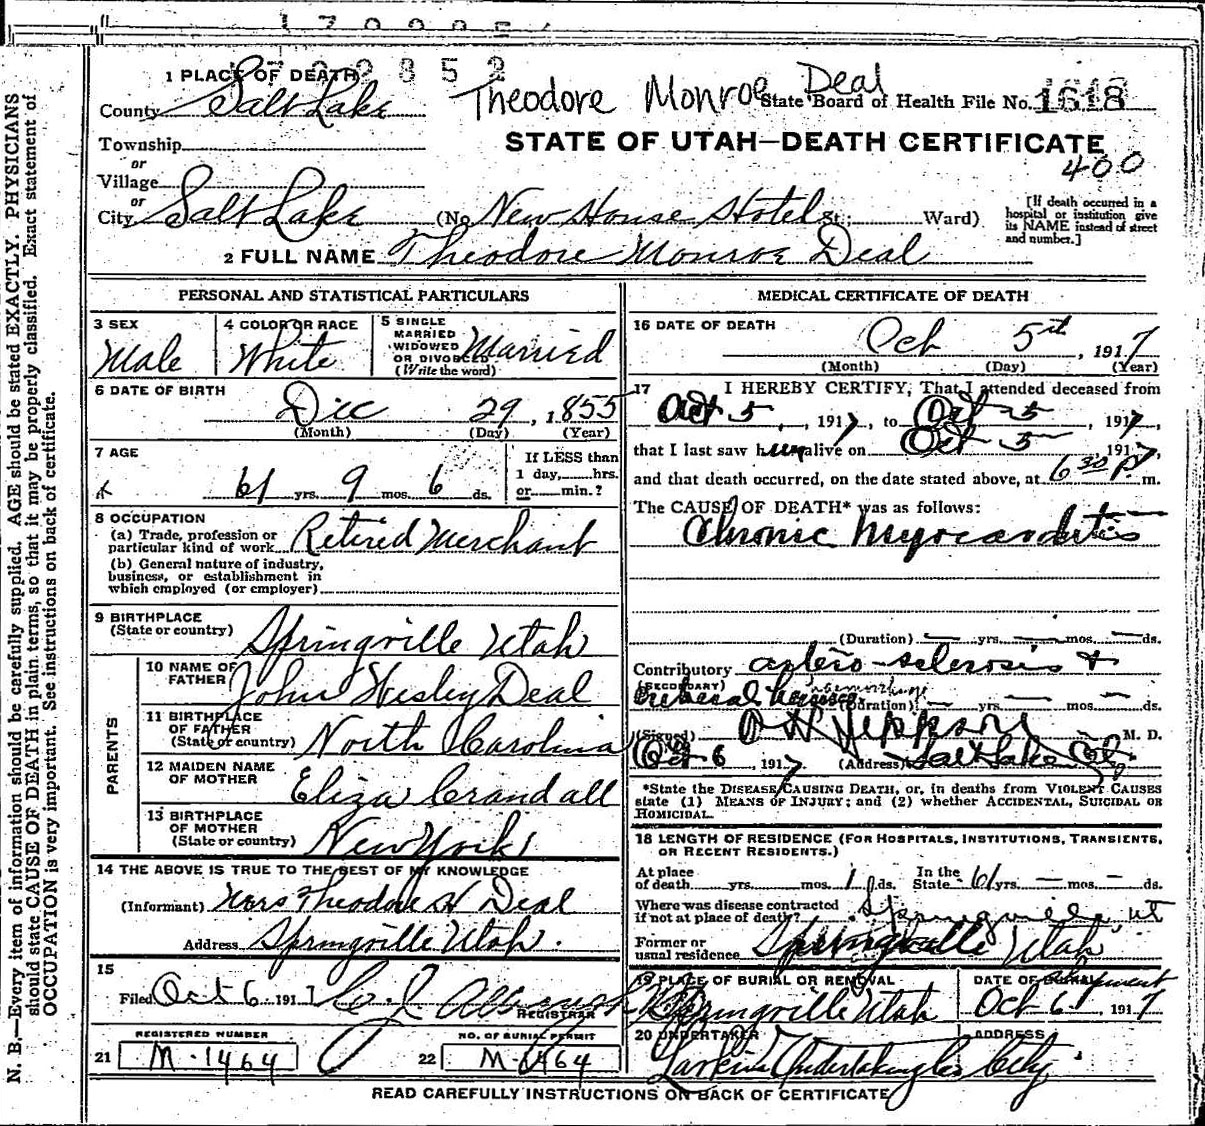 1 PLACE OF DEATH 2852
County Salt Lake Theodore Monroe Deal State Board of Health File No. 1618
Township STATE OF UTAH—DEATH CERTIFICATE
or 400
Village
or
City Salt Lake (No. New House Hotel St.; Ward) [If death occurred in a hospital or institution give its NAME instead of street and number.]
2 FULL NAME Theodore Monroe Deal
PERSONAL AND STATISTICAL PARTICULARS
3 SEX Male
4 COLOR OR RACE White
5 SINGLE MARRIED WIDOWED OR DIVORCED (Write the word) Married
6 DATE OF BIRTH
Dec 29, 1855
(Month) (Day) (Year)
7 AGE
61 yrs. 9 mos. 6 ds.
If LESS than
1 day, hrs.
or min.?
8 OCCUPATION
(a) Trade, profession or
particular kind of work Retired Merchant
(b) General nature of industry,
business, or establishment in
which employed (or employer)
9 BIRTHPLACE
(State or country) Springville Utah
PARENTS
10 NAME OF
FATHER John Wesley Deal
11 BIRTHPLACE
OF FATHER
(State or country) North Carolina
12 MAIDEN NAME
OF MOTHER Eliza Crandall
13 BIRTHPLACE
OF MOTHER
(State or country) New York
14 THE ABOVE IS TRUE TO THE BEST OF MY KNOWLEDGE
(Informant) Mrs Theodore H Deal
Address Springville Utah.
15
Filed Oct 6 1917
REGISTRAR
REGISTERED NUMBER
21 M-1464
NO. OF BURIAL PERMIT
22 M-1464
MEDICAL CERTIFICATE OF DEATH
16 DATE OF DEATH
Oct 5th, 1917
(Month) (Day) (Year)
17 I HEREBY CERTIFY, That I attended deceased from
Oct 5, 1917, to Oct 5, 1917,
that I last saw him alive on Oct 5, 1917,
and that death occurred, on the date stated above, at 6 30 P. m.
The CAUSE OF DEATH* was as follows:
Chronic Myocarditis
(Duration) — yrs. — mos. — ds.
Contributory artero-sclerosis +
(SECONDARY) hemorrhage (Duration) — yrs. — mos. — ds.
(Signed) Jeppson M. D.
Oct 6, 1917 (Address) Salt Lake City
*State the DISEASE CAUSING DEATH, or, in deaths from VIOLENT CAUSES
state (1) MEANS OF INJURY; and (2) whether ACCIDENTAL, SUICIDAL OR
HOMICIDAL.
18 LENGTH OF RESIDENCE (FOR HOSPITALS, INSTITUTIONS, TRANSIENTS,
OR RECENT RESIDENTS.)
At place
of death yrs. mos. 1 ds. In the State 61 yrs. — mos. — ds.
Where was disease contracted
if not at place of death? Springville, Ut
Former or
usual residence Springville Utah
19 PLACE OF BURIAL OR REMOVAL
Springville Utah
DATE OF BURIAL shipment
Oct 6 1917
20 UNDERTAKER
Larkin Undertaking Co
ADDRESS
City
READ CAREFULLY INSTRUCTIONS ON BACK OF CERTIFICATE
N. B.—Every item of information should be carefully supplied. AGE should be stated EXACTLY. PHYSICIANS
should state CAUSE OF DEATH in plain terms, so that it may be properly classified. Exact statement of
OCCUPATION is very important. See instructions on back of certificate.